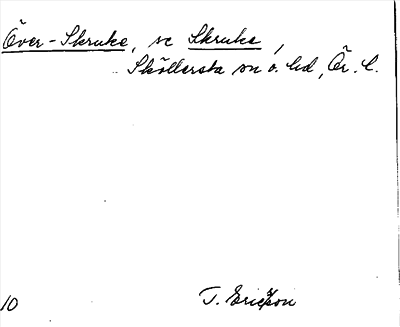 Över-Skruke, se Skruke,
Sköllersta sn o. hd, Ör. l.
10 T. Ericsson